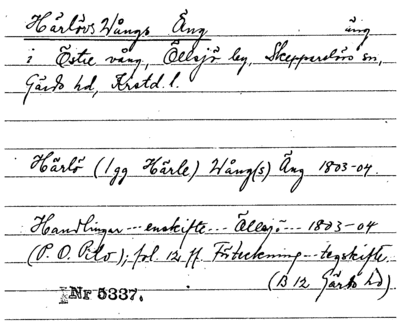 Härlövs Wångs Äng äng
i Östre vång, Öllsjö by, Skepparslövs sn,
Gärds hd, Krstd. l.
Härlö (1 gg Härle) Wång(s) Äng 1803-04.
Handlingar --- enskifte --- Öllsjö --- 1803-04
(P. O. Pilo); fol. 12 ff. Förteckning --- tegskifte
(B 12 Gärds hd)
Nr 5337.